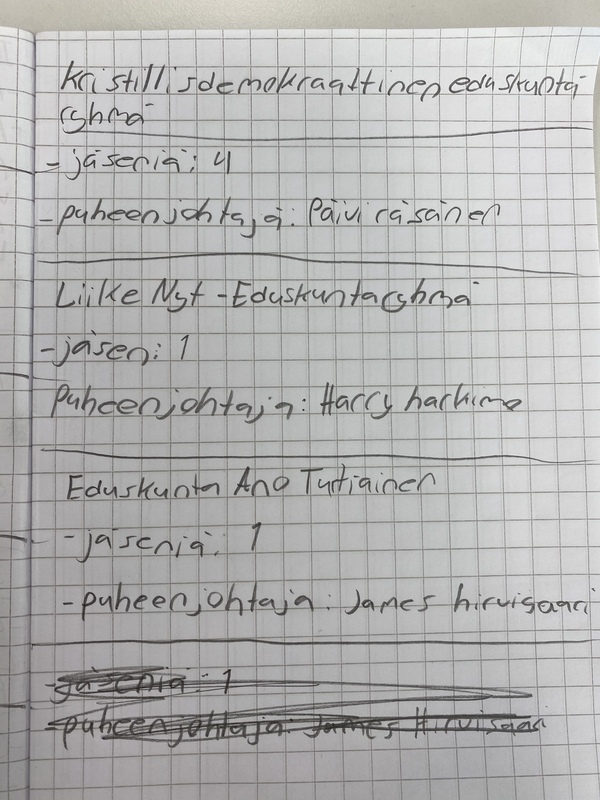 Kristillisdemokraattinen eduskunta
ryhmä
- jäseniä: 4
- puheenjohtaja: Päivi räsänen
Liike Nyt - Eduskuntaryhmä
- jäsen: 1
Puheenjohtaja: Harry harkimo
Eduskunta Ano Turtiainen
- jäseniä: 1
- puheenjohtaja: James hirvisaari
- jäseniä: 1
- puheenjohtaja: James Hirvisaari